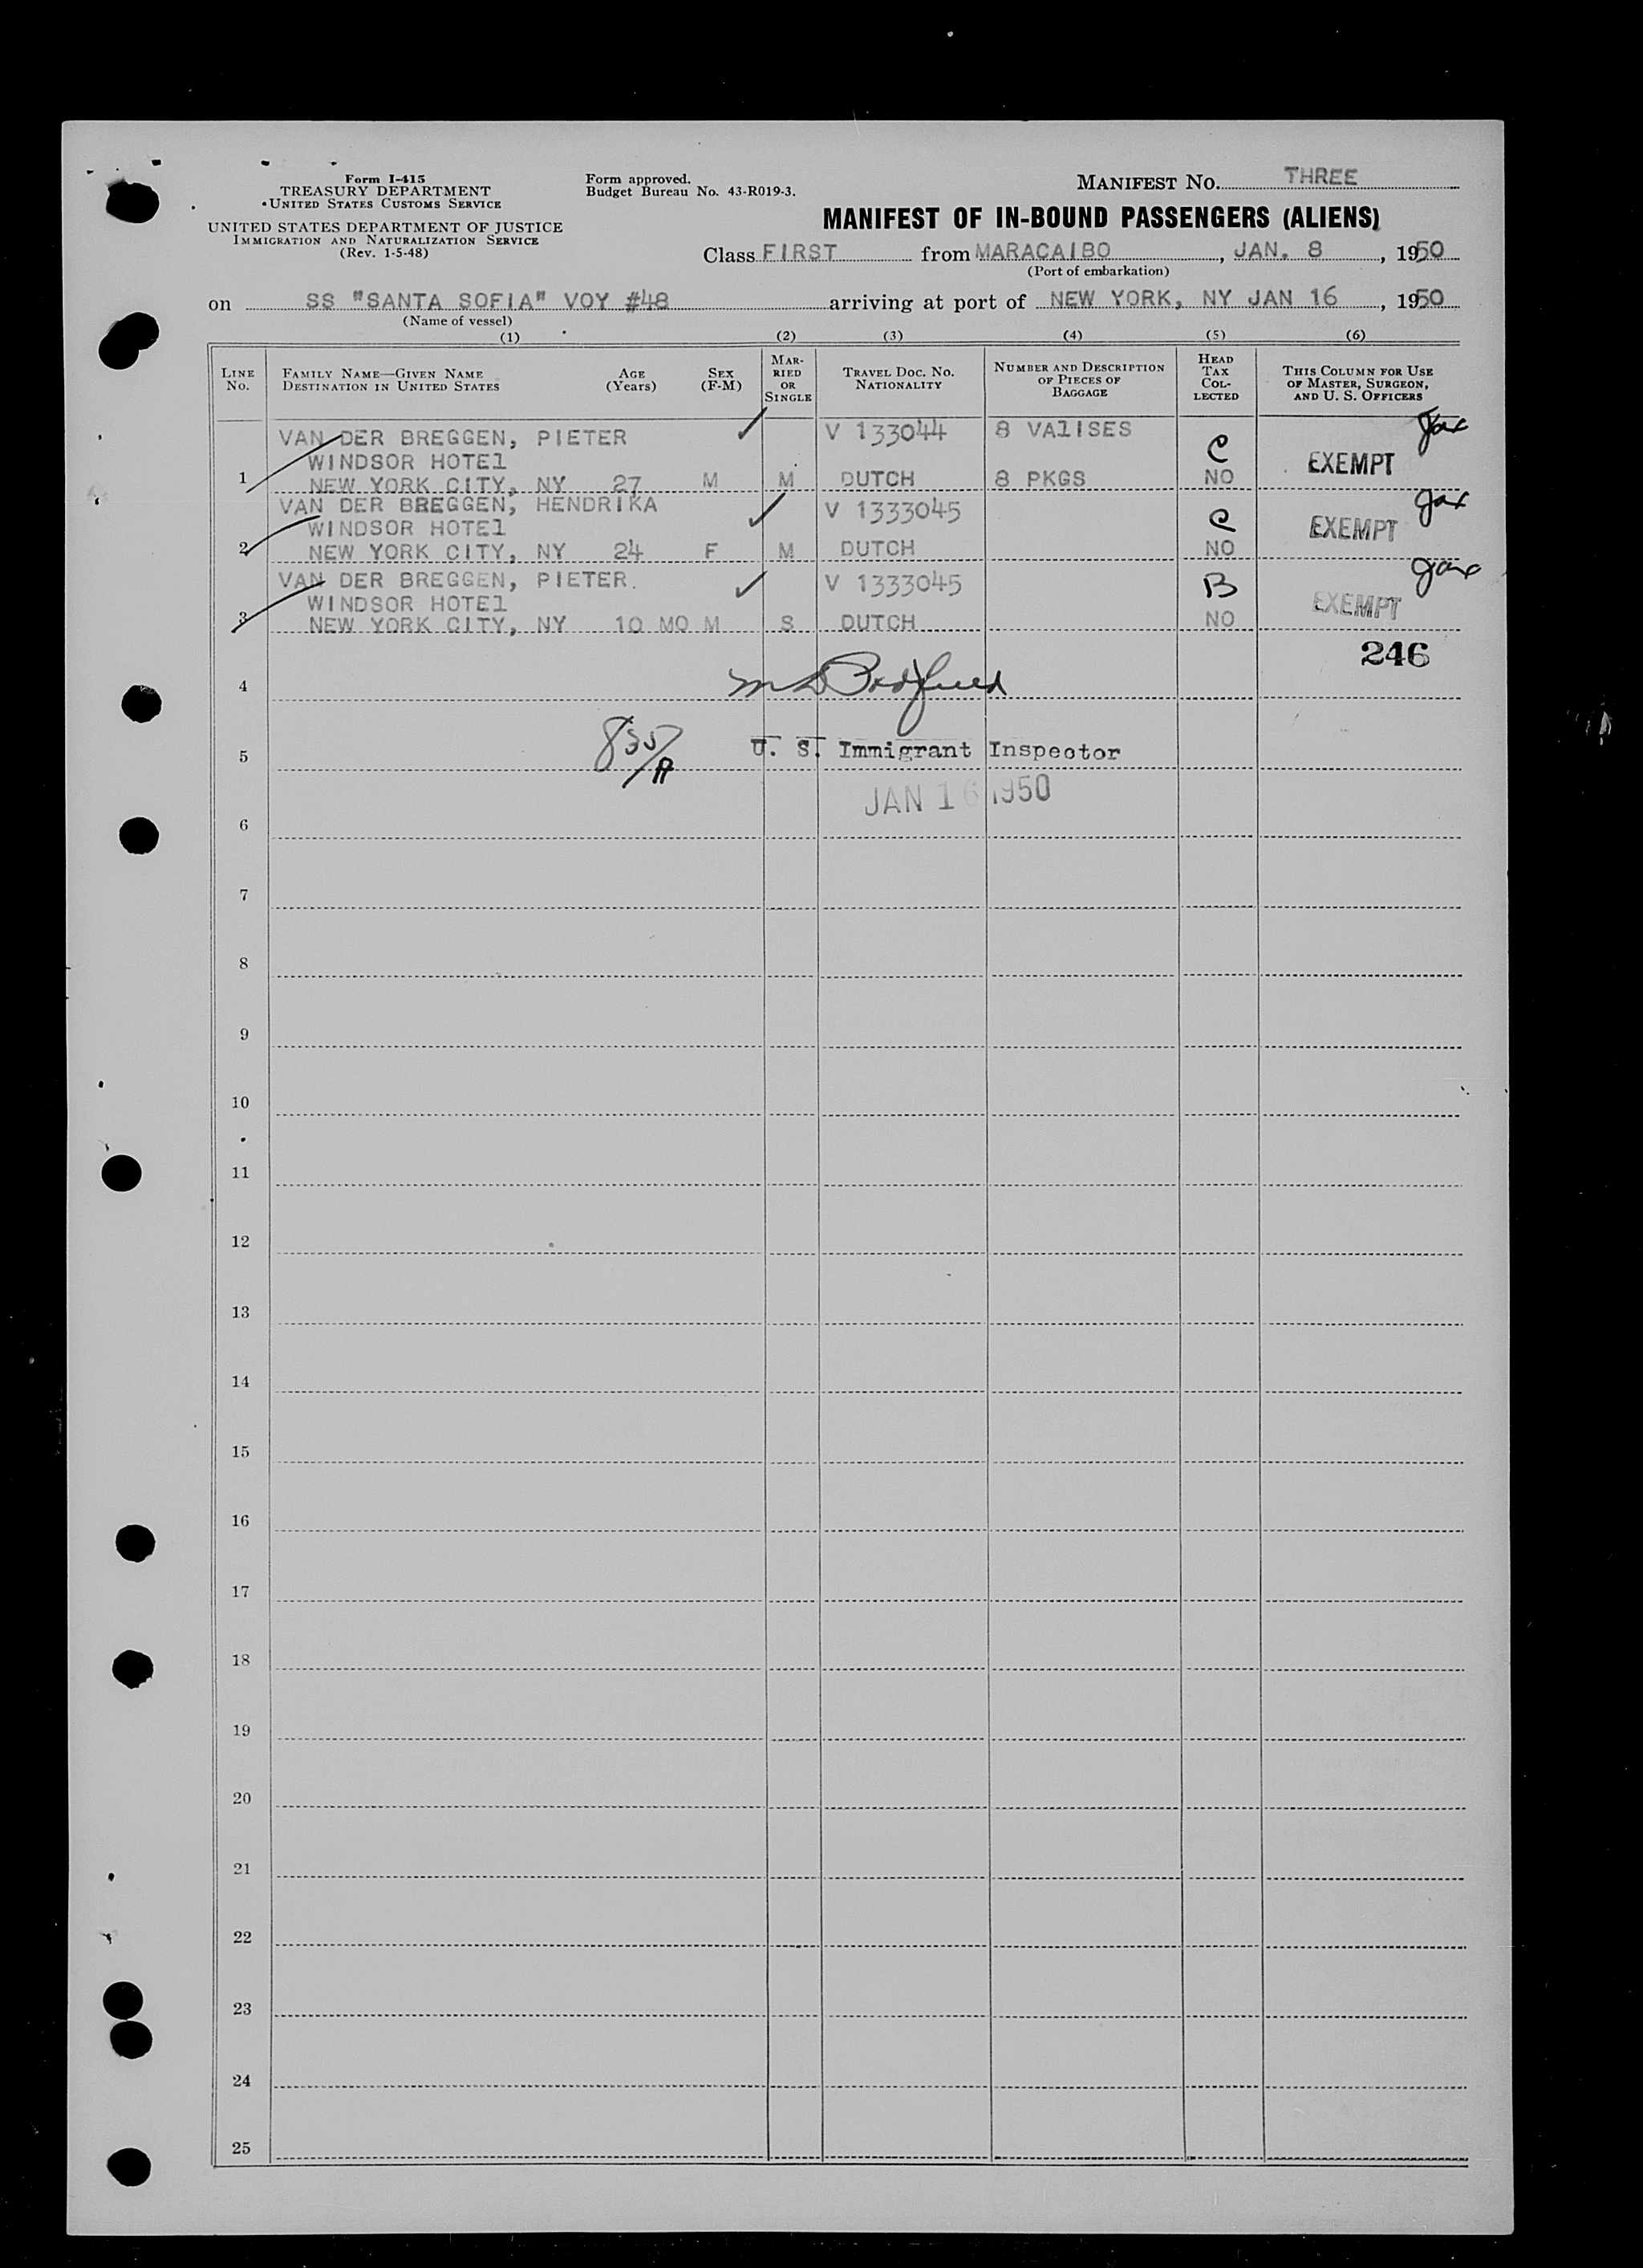 Form I-415
TREASURY DEPARTMENT
UNITED STATES CUSTOMS SERVICE
UNITED STATES DEPARTMENT OF JUSTICE
IMMIGRATION AND NATURALIZATION SERVICE
(Rev. 1-5-48)
Form approved.
Budget Bureau No. 43-R019-3.
MANIFEST NO. THREE
MANIFEST OF IN-BOUND PASSENGERS (ALIENS)
Class FIRST from MARACAIBO, JAN. 8, 1950
(Port of embarkation)
on SS "SANTA SOFIA" VOY #48 arriving at port of NEW YORK, NY JAN 16, 1950
(Name of vessel)
(1) (2) (3) (4) (5) (6)
LINE NO.
FAMILY NAME—GIVEN NAME
DESTINATION IN UNITED STATES
AGE
(Years)
SEX
(F-M)
MAR-
RIED
OR
SINGLE
TRAVEL DOC. NO.
NATIONALITY
NUMBER AND DESCRIPTION
OF PIECES OF
BAGGAGE
HEAD
TAX
COL-
LECTED
THIS COLUMN FOR USE
OF MASTER, SURGEON,
AND U. S. OFFICERS
VAN DER BREGGEN, PIETER V 133044 8 VALISES
WINDSOR HOTEl C EXEMPT
1 NEW YORK CITY, NY 27 M M DUTCH 8 PKGS NO
VAN DER BREGGEN, HENDRIKA V 1333045
WINDSOR HOTEl C EXEMPT
2 NEW YORK CITY, NY 24 F M DUTCH NO
VAN DER BREGGEN, PIETER. V 1333045 B
WINDSOR HOTEl EXEMPT
3 NEW YORK CITY, NY 10 MO M S DUTCH NO
246
4
5 U. S. Immigrant Inspector
JAN 16 1950
6
7
8
9
10
11
12
13
14
15
16
17
18
19
20
21
22
23
24
25